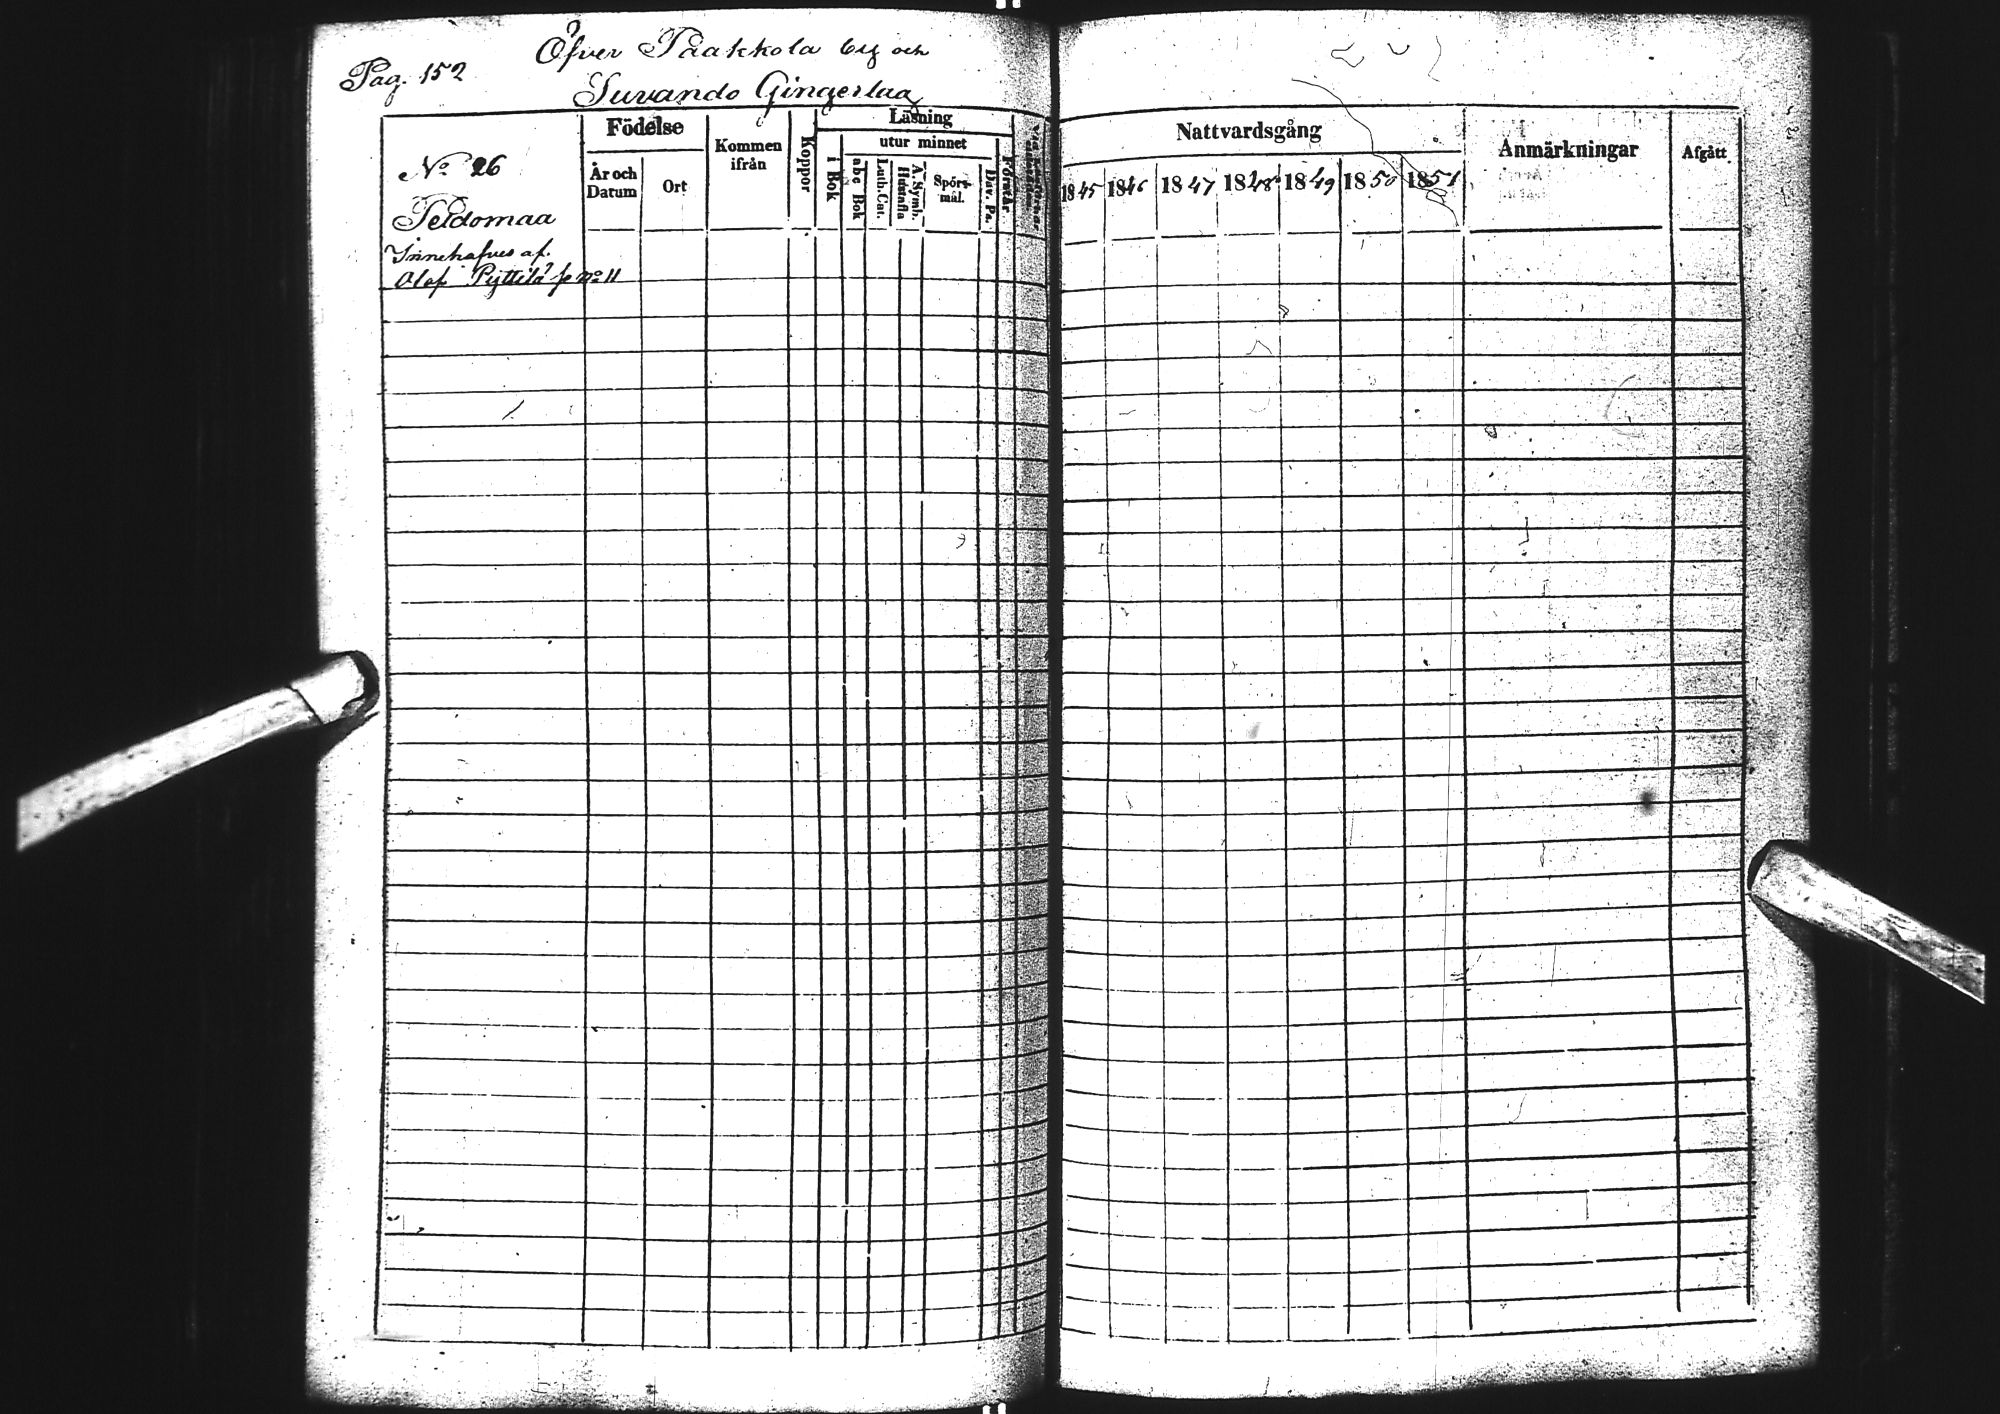 Öfver Paakkola by och
Pag. 152
Suvando Gingerlag
Födelse
Kommen
ifrån
Koppor
Läsning
utur minnet
i Bok
abc Bok
Luth. Cat.
Hustafla
A. Symb.
Spörs-
mål.
Dav. Ps.
Förstår
År och
Datum
Ort
No 26
Peldomaa
Innehafves af
Olof Pyttilä se No 11
Nattvardsgång
1845 1846 1847 1848 1849 1850 1851
Anmärkningar
Afgått